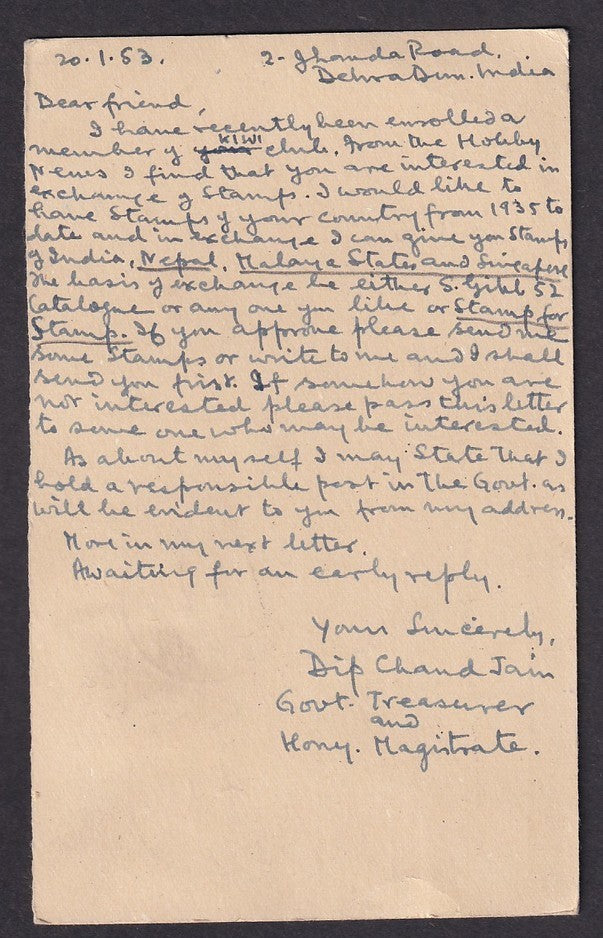 20.1.53. 2- Jhanda Road,
Dehra Dun. India
Dear friend,
I have recently been enrolled a
member of your KIWI club. From the Hobby
News I find that you are interested in
exchange of Stamps. I would like to
have Stamps of your country from 1935 to
date and in exchange I can give you Stamps
of India, Nepal, Malaya States and Singapore
The basis of exchange be either S. Gibb 52
Catalogue or any one you like or Stamp for
Stamp. If you approve please send me
some Stamps or write to me and I shall
send you first. If somehow you are
not interested please pass this letter
to some one who may be interested.
As about myself I may State that I
hold a responsible post in the Govt. as
will be evident to you from my address.
More in my next letter.
Awaiting for an early reply.
Yours Sincerely,
Dip Chand Jain
Govt. Treasurer
and
Hony. Magistrate.